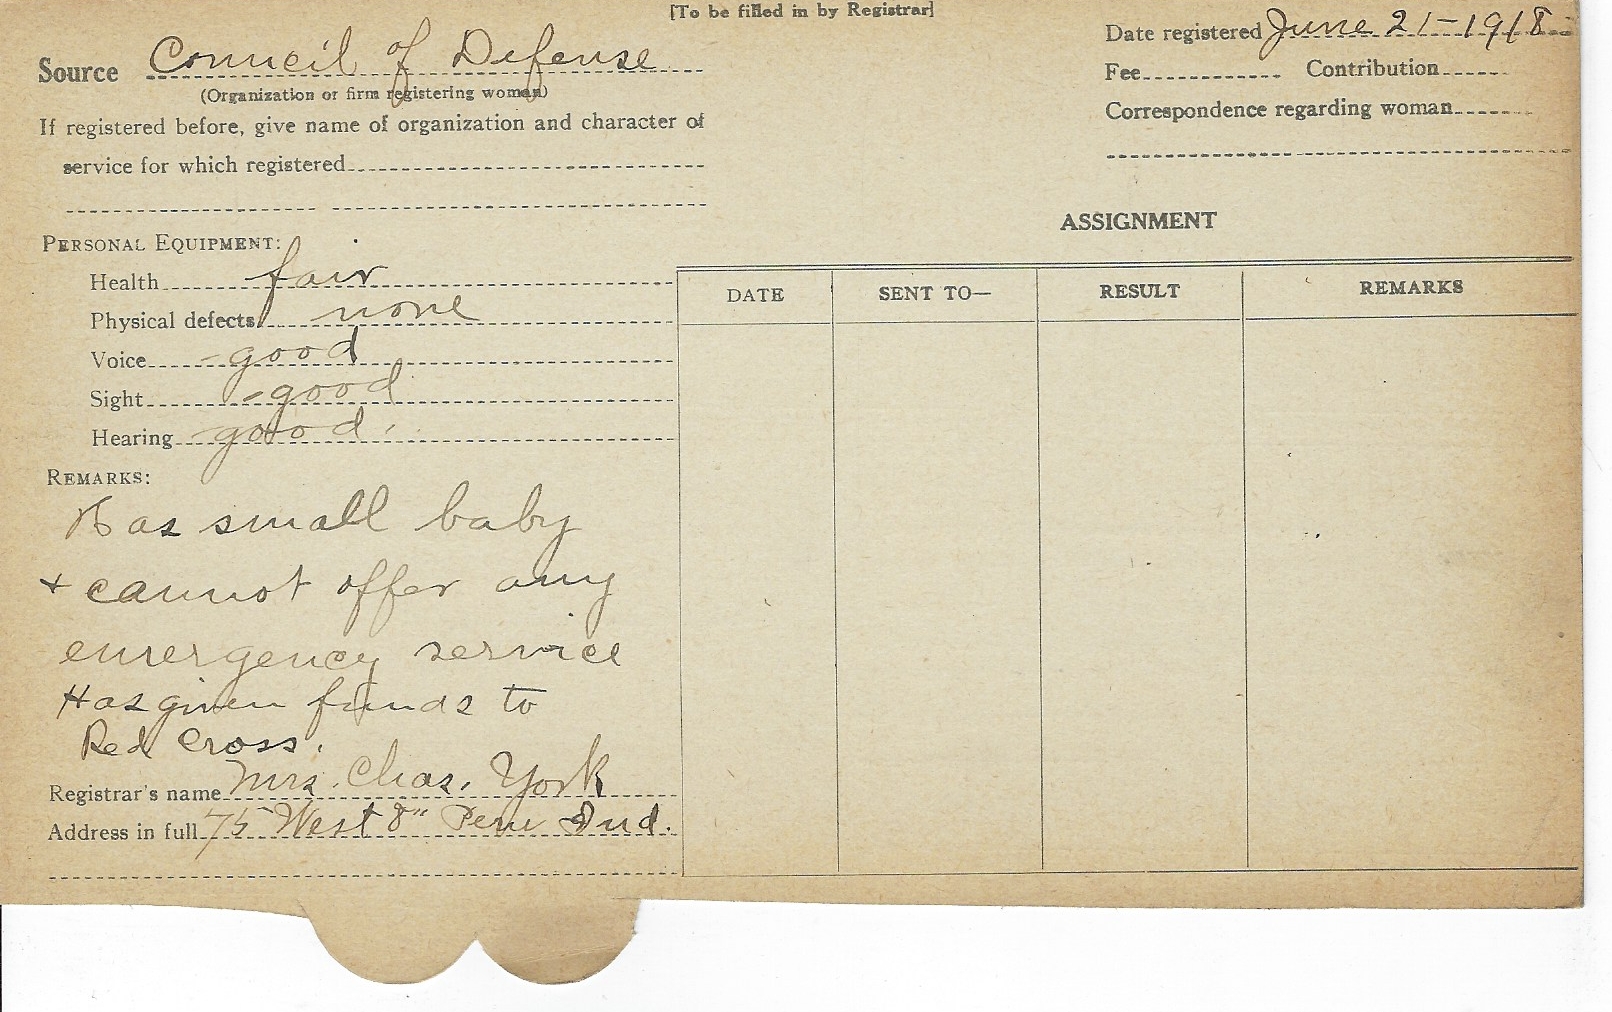 [To be filled in by Registrar]
Source Council of Defense
(Organization or firm registering woman)
If registered before, give name of organization and character of
service for which registered
Date registered June 21-1918
Fee Contribution
Correspondence regarding woman
PERSONAL EQUIPMENT:
Health fair
Physical defects none
Voice good
Sight good
Hearing good.
REMARKS:
Has small baby
+ cannot offer any
emergency service
Has given funds to
Red Cross.
Registrar's name Mrs. Chas. York
Address in full 75 West 8" Peru Ind.
ASSIGNMENT
DATE SENT TO— RESULT REMARKS